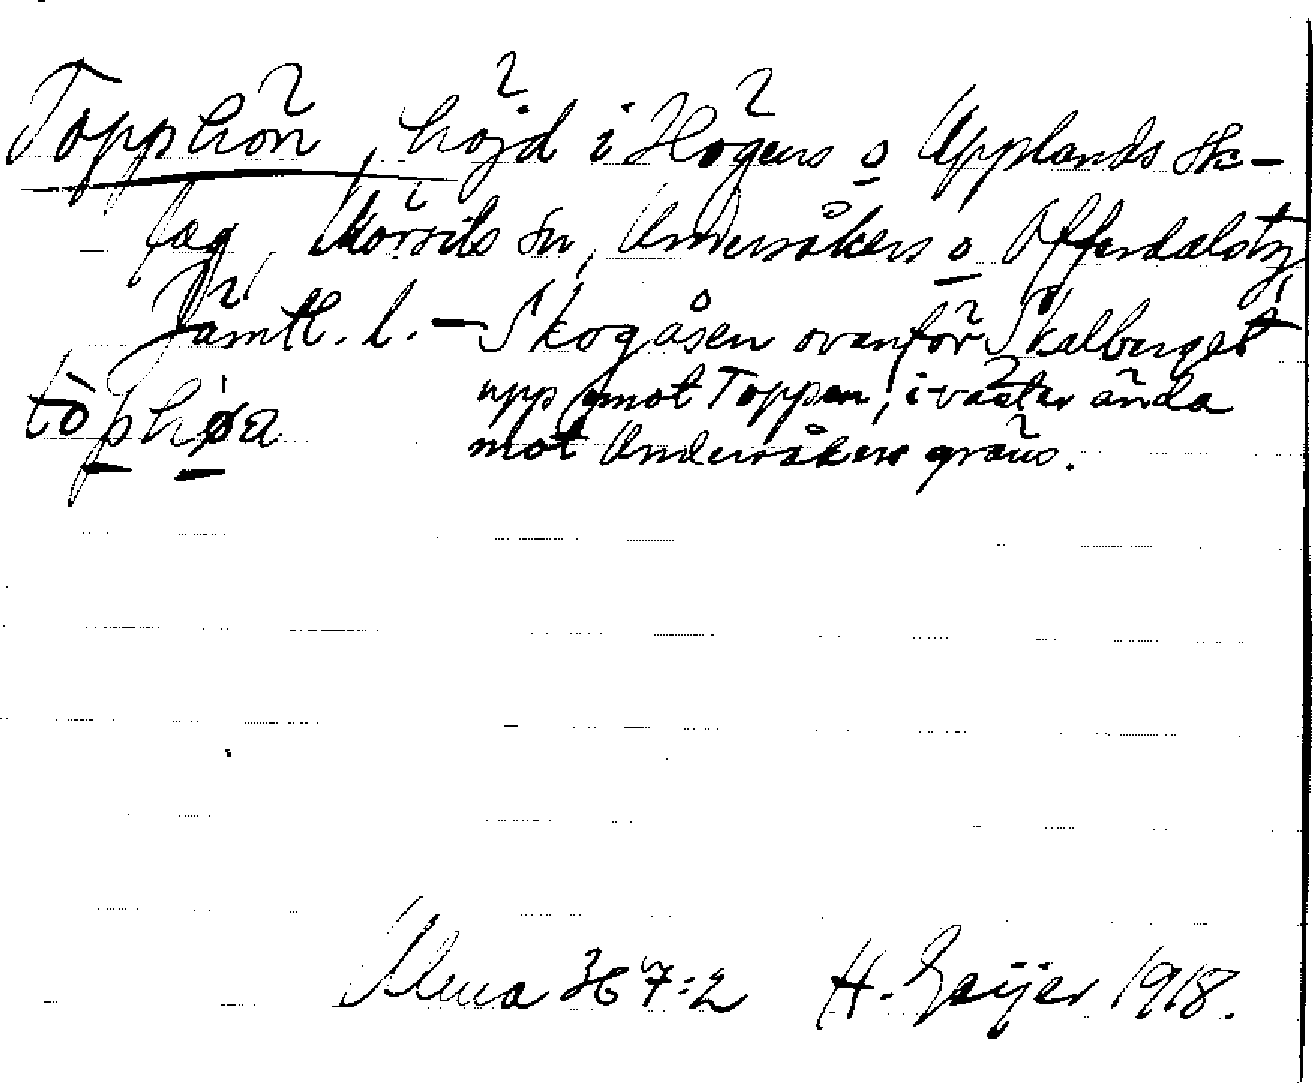 Topphön, höjd i Högens o Upplands sk-
lag, Mörsils sn, Undersåkers o Offerdals tg,
Jämtl. l. – Skogåsen ovanför Skalberget
upp emot Toppen, i väster ända
tòphøa
mot Undersåkers gräns.
367:2 H. Geijer 1918.